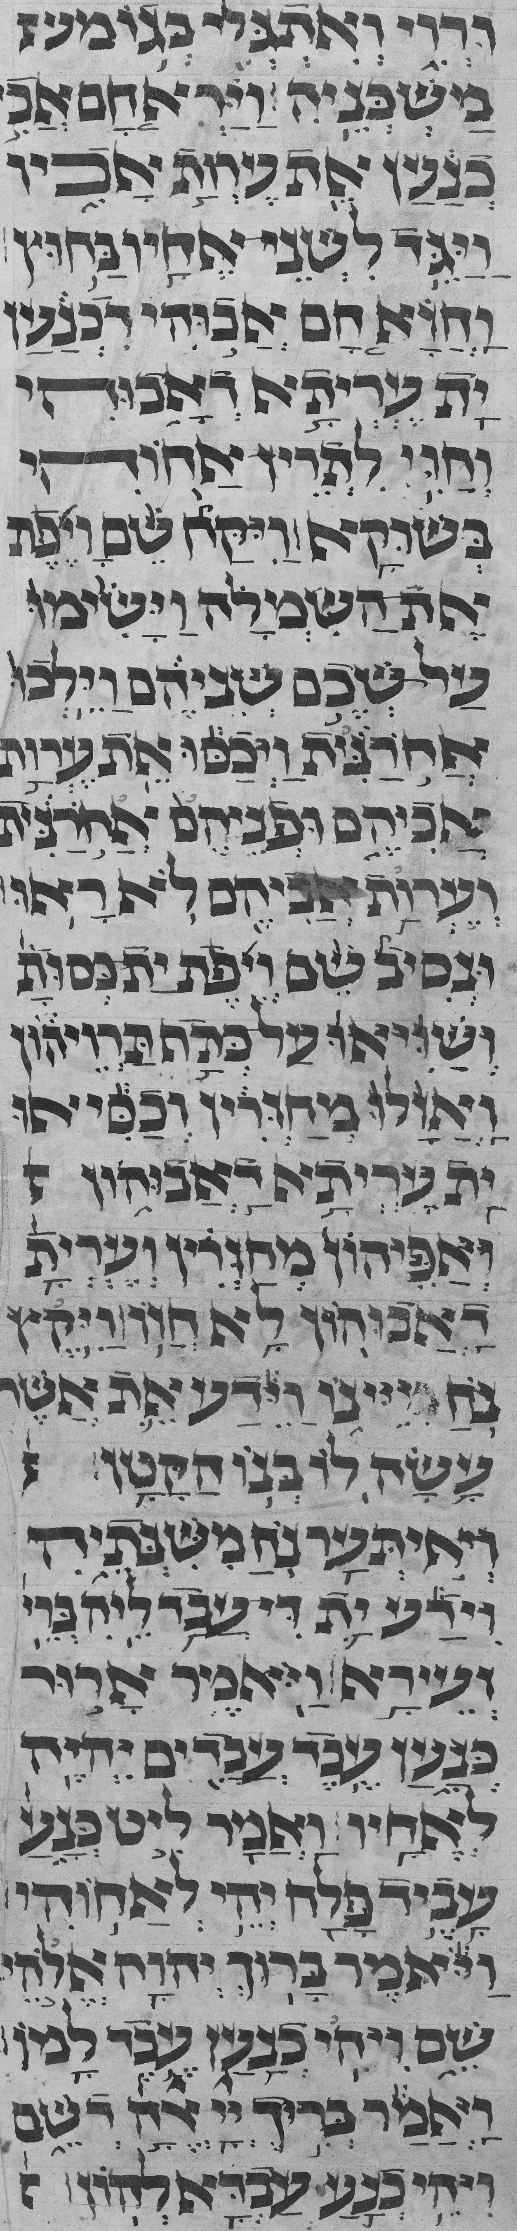 ורוי ואתגלי בגו מע
משכניה וירא חם אבי
כנען את ערות אביו
ויגד לשני אחיו בחוץ
וחזא חם אבוהי דכנען
ית עריתא דאבוהי
וחוי לתרין אחוהי
בשוקא ויקח שם ויפת
את השמלה וישימו
על שכם שניהם וילכו
אחרנית ויכסו את ערות
אביהם ופניהם אחרנית
וערות אביהם לא ראו
ונסיב שם ויפת ית כסות
ושויאו על תרויהון
ואזלו מחזרין וכסיאו
ית עריתא דאבוהון
ואפיהון מחזרין וערית
דאבוהון לא חזו וייקץ
נח מיינו וידע את אשר
עשה לו בנו הקטן
ואיתער נח משנתיה
וידע ית די עבד ליה בריה
זעירא ויאמר ארור
כנען עבד עבדים יהיה
לאחיו ואמר ליט כנע
עביד פלח יהי לאחוהי
ויאמר ברוך יהוה אלהי
שם ויהי כנען עבד למו
ואמר בריך יי אלה דשם
ויהי כנע עבדא להון